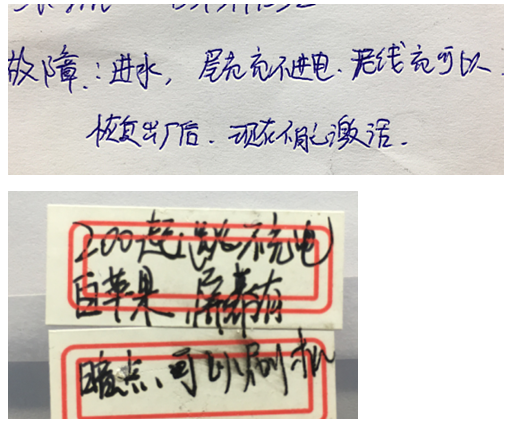 故障:进水,尾充充不进电.无线充可以.
恢复出厂后.现在不能激活.
200起跳不充电
白苹果,屏幕有
暗点、可以刷机